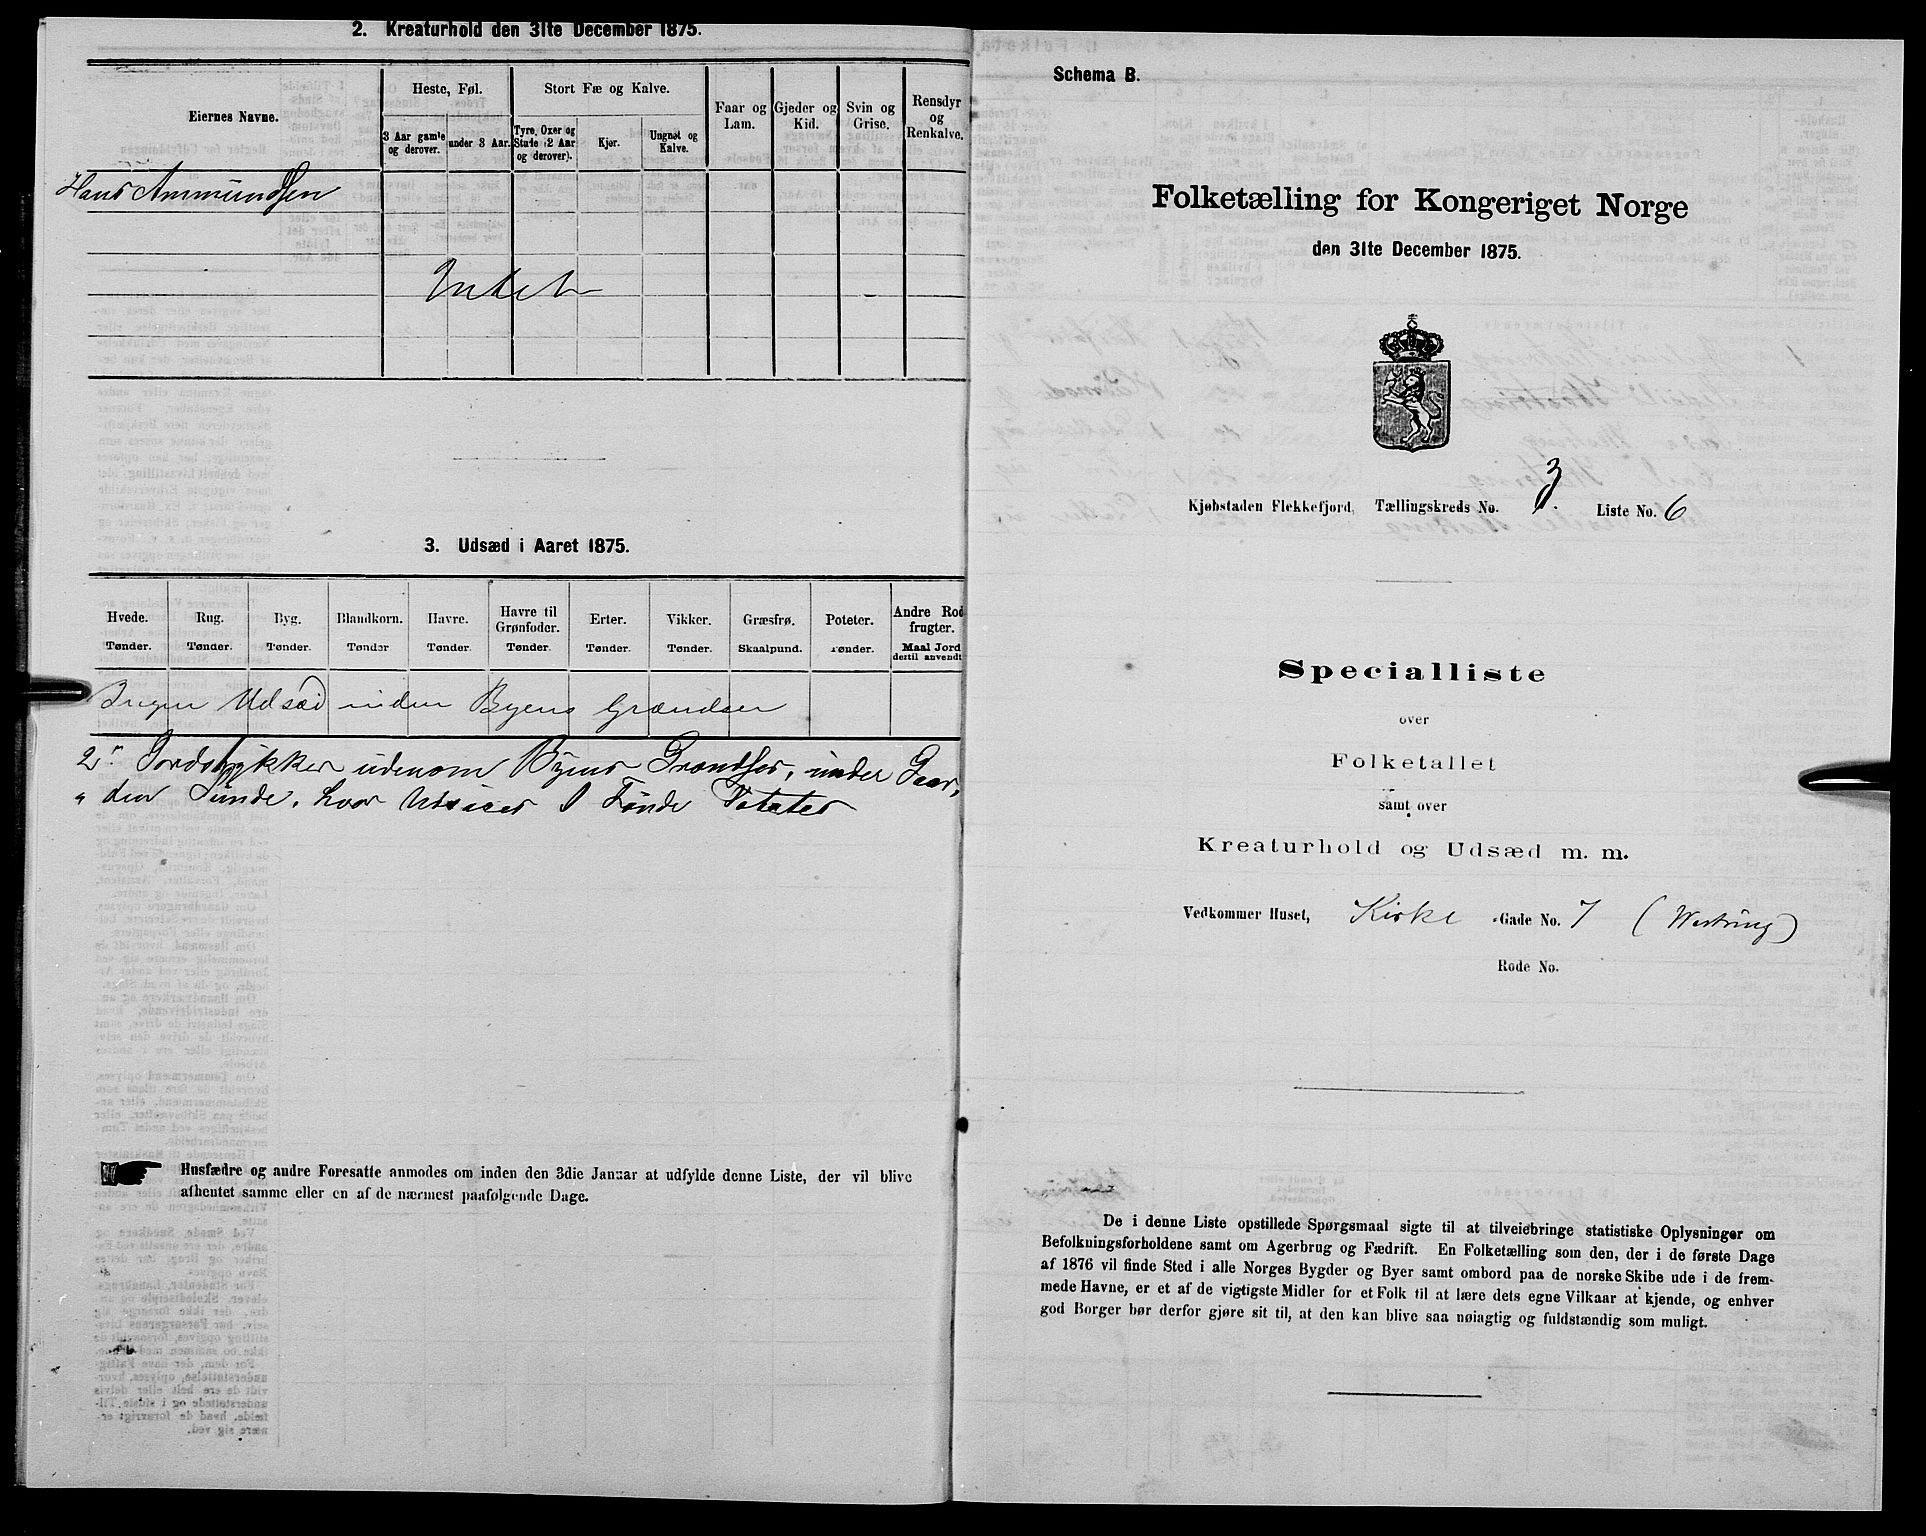 2. Kreaturhold den 31te December 1875.
Eiernes Navne.
Heste, Føl.
Stort Fæ og Kalve.
Faar og Lam.
Gjeder og Kid.
Svin og Grise.
Rensdyr og Renkalve.
3 Aar gamle og derover.
under 3 Aar.
Tyre, Oxer og Stude (2 Aar og derover).
Kjør.
Ungnøt og Kalve.
Hans Ammundsen
Intet
3. Udsæd i Aaret 1875.
Hvede. Rug. Byg. Blandkorn. Havre. Havre til Grønfoder. Erter. Vikker. Græsfrø. Poteter. Andre Rodfrugter.
Tønder. Tønder. Tønder. Tønder Tønder. Tønder. Tønder. Tønder. Skaalpund. Tønder. Maal Jord dertil anvendt
Ingen Udsæd inden Byens Grændser
2 Jordstykker udenom Byens Grændser, under Gaar,
den Sunde, hvor Udsaaes 1 Tønde Poteter
Husfædre og andre Foresatte anmodes om inden den 3die Januar at udfylde denne Liste, der vil blive
afhentet samme eller en af de nærmest paafølgende Dage.
Schema B.
Folketælling for Kongeriget Norge
den 31te December 1875.
Kjøbstaden Flekkefjord, Tællingskreds No. 3. Liste No. 6
Specialliste
over
Folketallet
samt over
Kreaturhold og Udsæd m. m.
Vedkommer Huset, Kirke Gade No. 7 (Westring)
Rode No.
De i denne Liste opstillede Spørgsmaal sigte til at tilveiebringe statistiske Oplysninger om
Befolkningsforholdene samt om Agerbrug og Fædrift. En Folketælling som den, der i de første Dage
af 1876 vil finde Sted i alle Norges Bygder og Byer samt ombord paa de norske Skibe ude i de frem-
mede Havne, er et af de vigtigste Midler for et Folk til at lære dets egne Vilkaar at kjende, og enhver
god Borger bør derfor gjøre sit til, at den kan blive saa nøiagtig og fuldstændig som muligt.